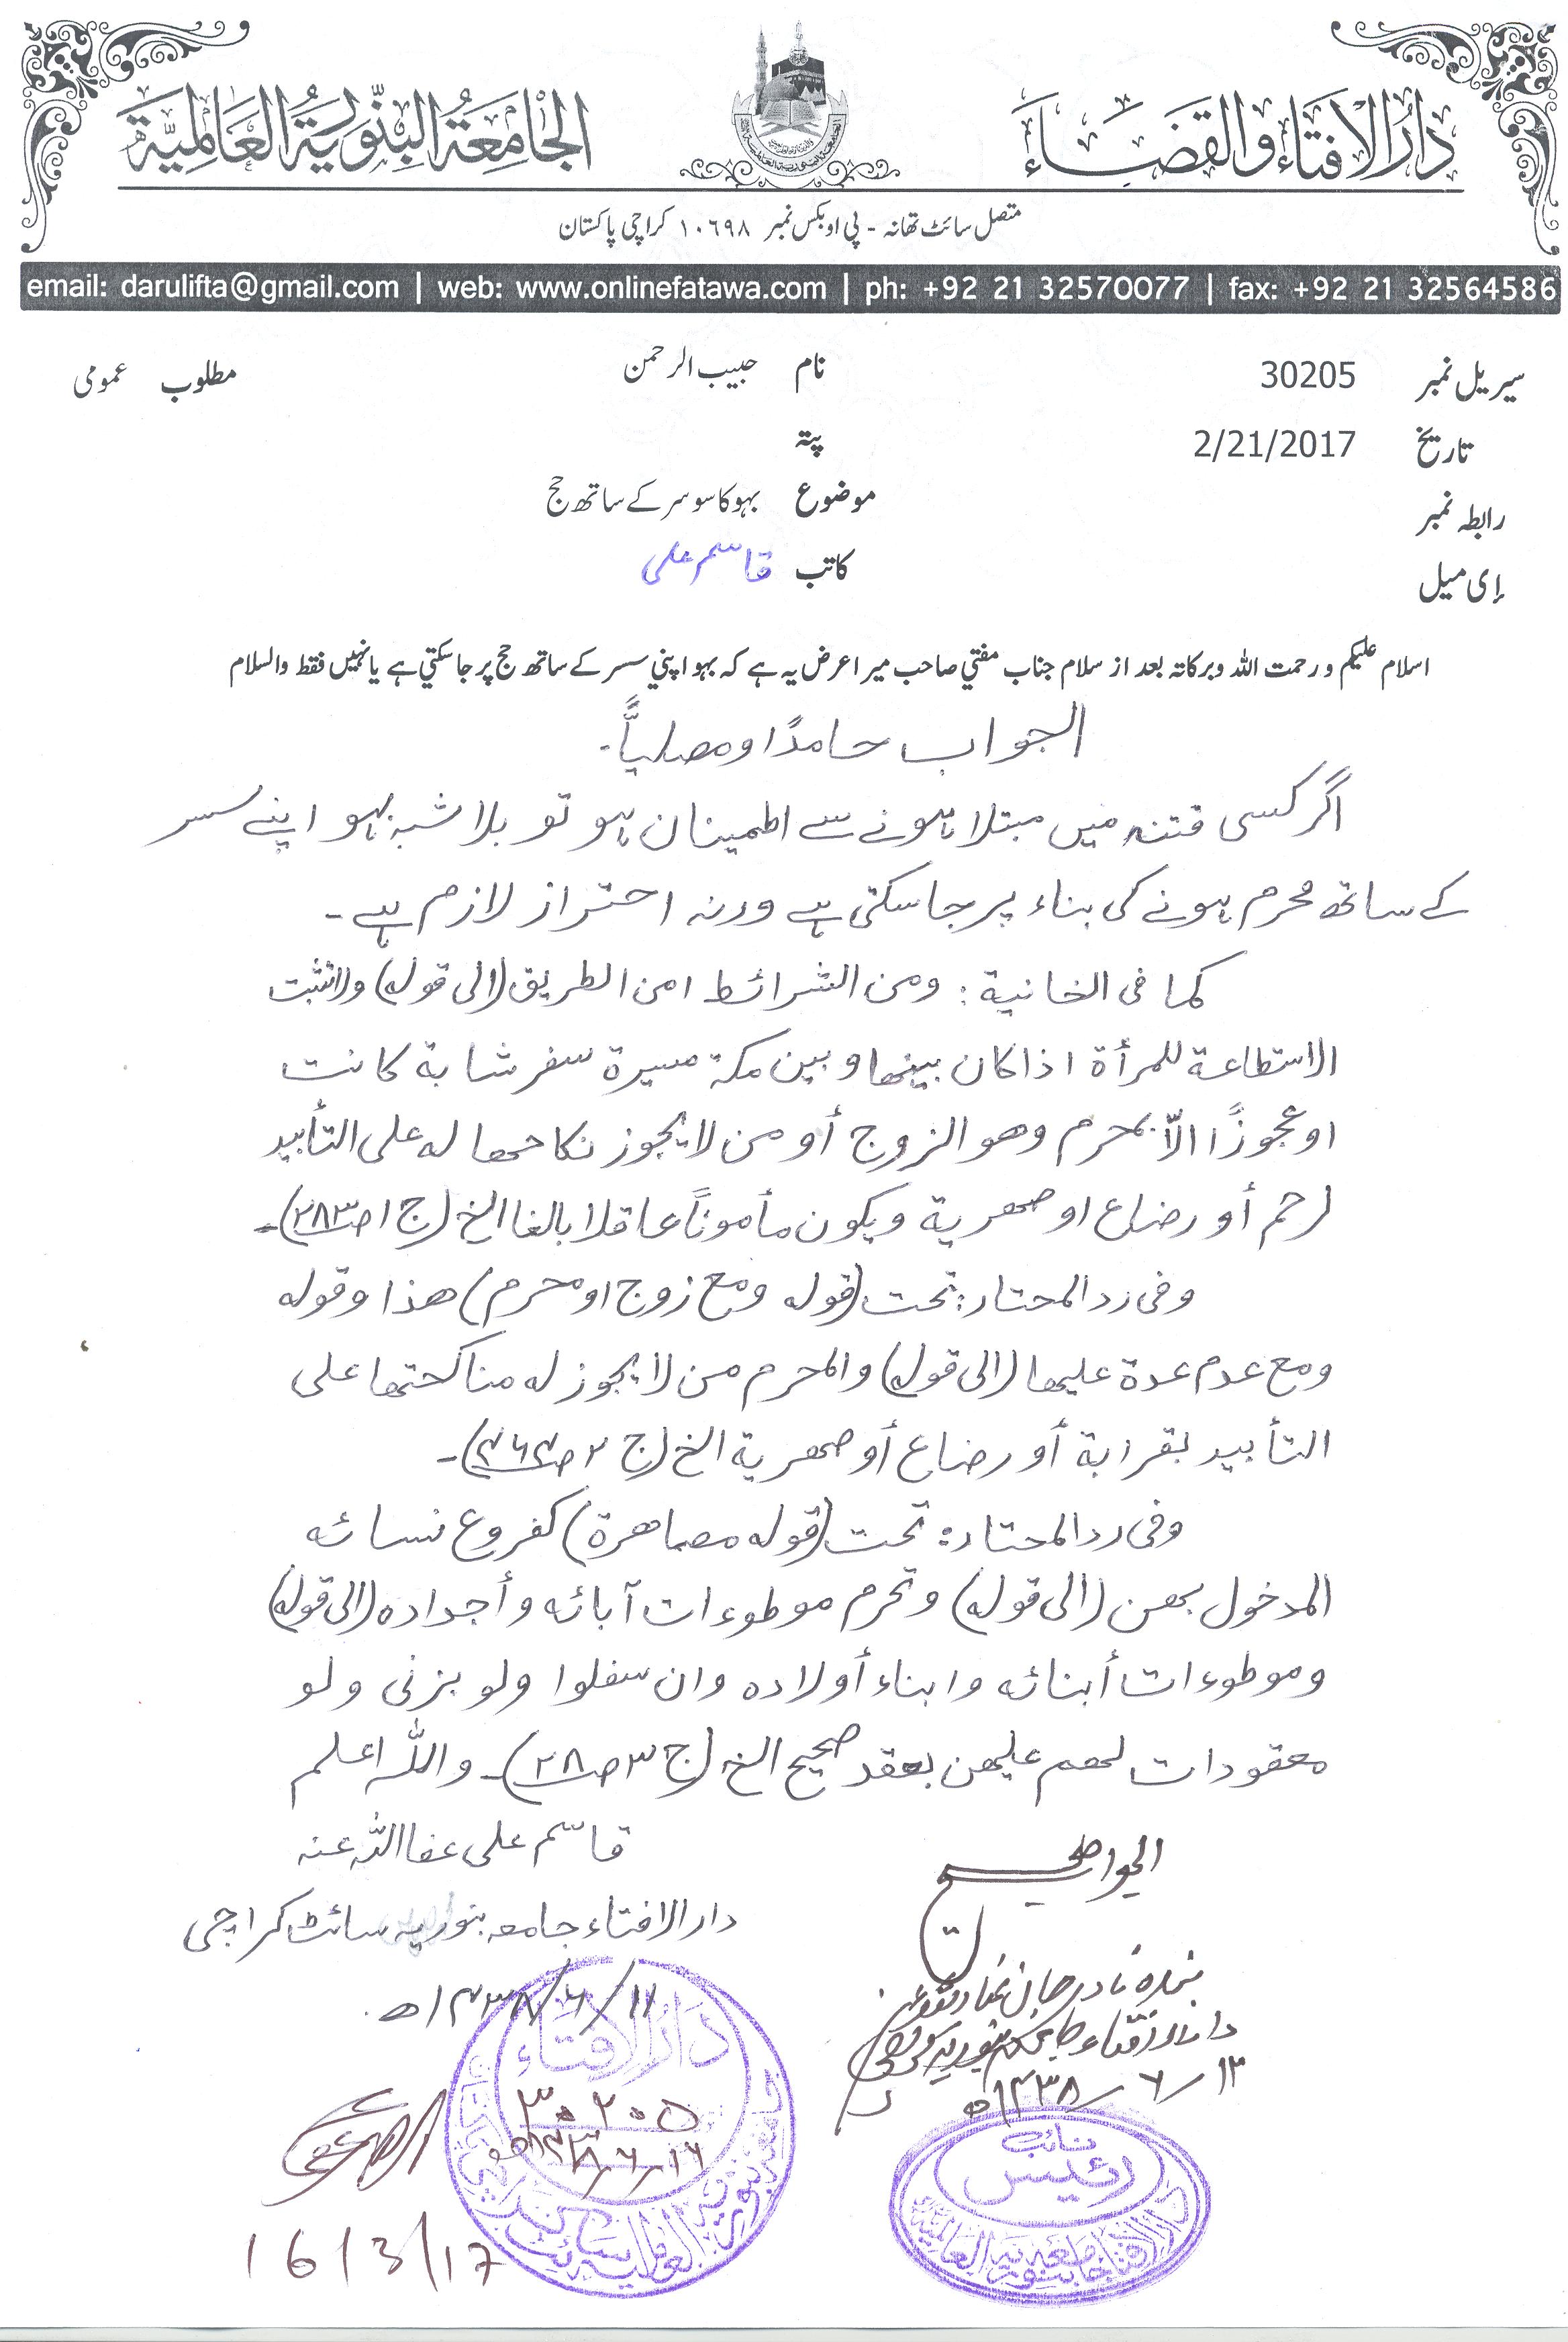 دارالافتاء والقضاء
الجامعة البنورية العالمية
متصل سائٹ تھانہ - پی او بکس نمبر ۱۰۶۹۸ کراچی پاکستان
email: darulifta@gmail.com | web: www.onlinefatawa.com | ph: +92 21 32570077 | fax: +92 21 32564586
سیریل نمبر 30205 نام حبیب الرحمن مطلوب عمومی
تاریخ 2/21/2017 پتہ
رابطہ نمبر موضوع بہو کا سوسر کے ساتھ حج
إی میل کاتب قاسم علی
اسلام علیکم و رحمت اللہ وبرکاتہ بعد از سلام جناب مفتي صاحب میرا عرض یہ ہے کہ بہو اپني سسر کے ساتھ حج پر جا سکتي ہے یا نہیں فقط والسلام
الجواب حامدًا ومصلیاً۔
اگر کسی فتنہ میں مبتلا نہ ہونے سے اطمینان ہو تو بلا شبہ بہو اپنے سسر
کے ساتھ محرم ہونے کی بناء پر جا سکتی ہے ورنہ احتراز لازم ہے۔
کما فی الخانیة: ومن الشرائط امن الطریق (الی قوله) ولا تثبت
الاستطاعة للمرأة اذا کان بینها و بین مکة مسیرة سفر شابة کانت
او عجوزًا الاّ بمحرم وهو الزوج أو من لا یجوز نکاحها له علی التأبید
لرحم أو رضاع او صهریة ویکون مأموناً عاقلا بالغا الخ (ج ۱ ص۲۸۳)۔
وفی رد المحتار: تحت (قوله ومع زوج او محرم) هذا وقوله
ومع عدم عدة علیها (الی قوله) والمحرم من لا یجوز له مناکحتها علی
التأبید بقرابة أو رضاع أو صهریة الخ (ج ۲ ص۴۶۴)۔
وفی رد المحتار: تحت (قوله مصاهرة) کفروع نسائه
المدخول بهن (الی قوله) وتحرم موطوءات آبائه وأجداده (الی قوله)
وموطوءات أبنائه وابناء أولاده وان سفلوا ولو بزنی ولو
معقودات لهم علیهن بعقد صحیح الخ (ج ۳ ص۲۸)۔ واللہ اعلم
قاسم علی عفا اللہ عنہ
دارالافتاء جامعہ بنوریہ سائٹ کراچی
۱۱/۶/۱۴۳۸ھ
الجواب صحیح
بندہ نادر جان عفا اللہ عنہ
۱۳/۶/۱۴۳۸ھ
دار الافتاء
۳۰۲۰۵
۱۶/۶/۱۴۳۸ھ
نائب
رئیس
دارالافتاء جامعہ بنوریہ العالمیہ
16/3/17